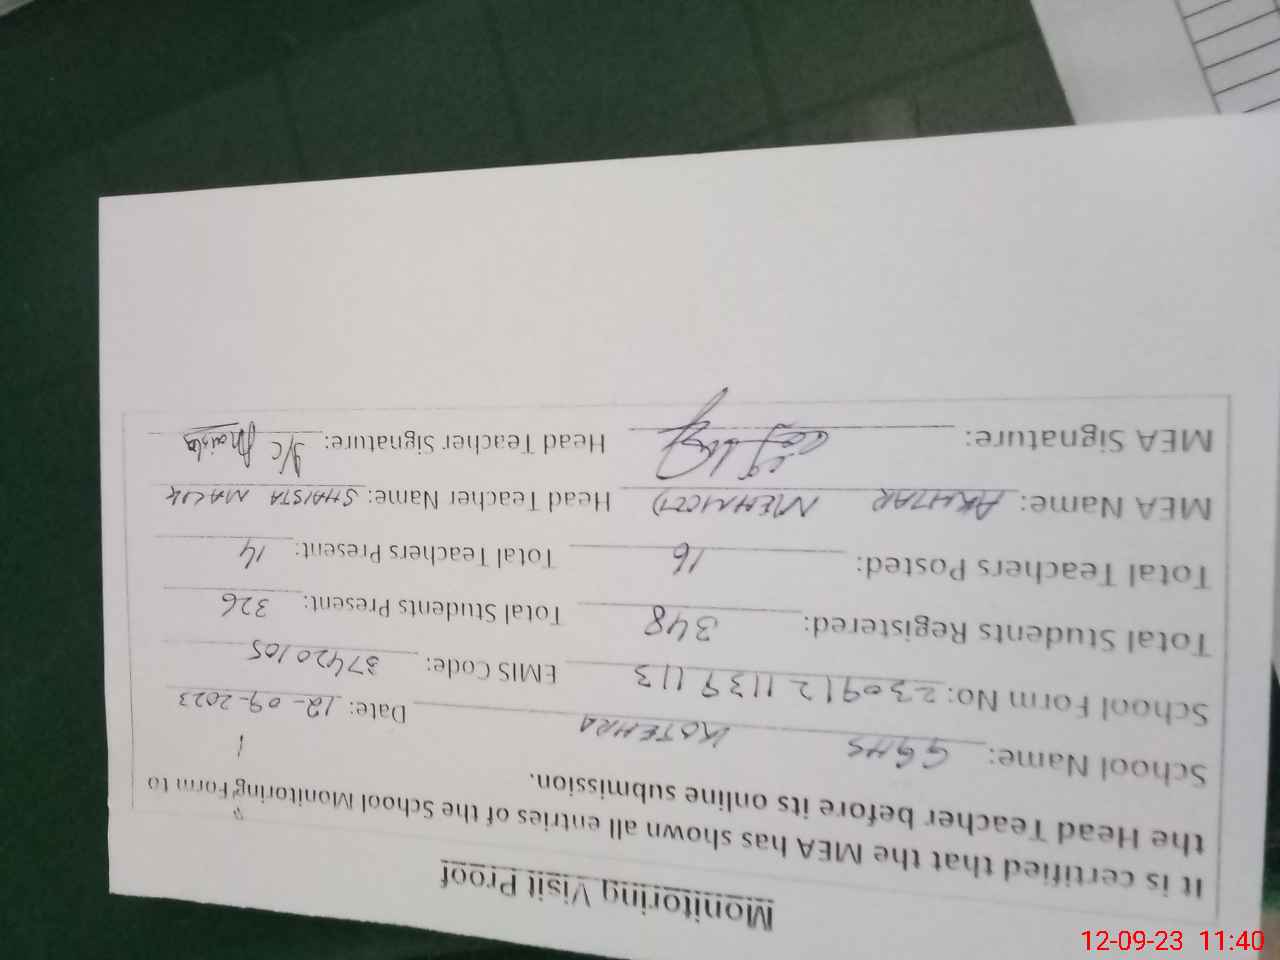 Monitoring Visit Proof
It is certified that the MEA has shown all entries of the School Monitoring Form to
the Head Teacher before its online submission.
School Name: GGHS KOTEHRA Date: 12-09-2023
School Form No: 230912 1139 113 EMIS Code: 37420105
Total Students Registered: 348 Total Students Present: 326
Total Teachers Posted: 16 Total Teachers Present: 14
MEA Name: AKHTAR Head Teacher Name: SHAISTA MALIK
MEA Signature: Head Teacher Signature: I/C Shaista
12-09-23 11:40